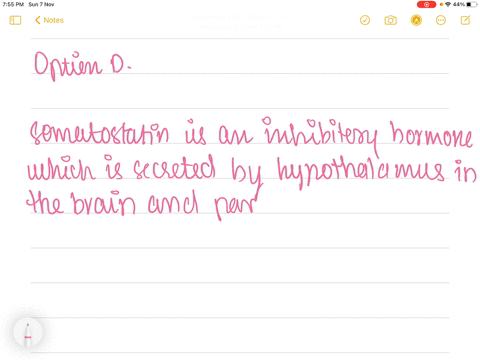 7:55 PM Sun 7 Nov
44%
Notes
Option D.
Somatostatin is an inhibitory hormone
which is secreted by hypothalamus in
the brain and pan